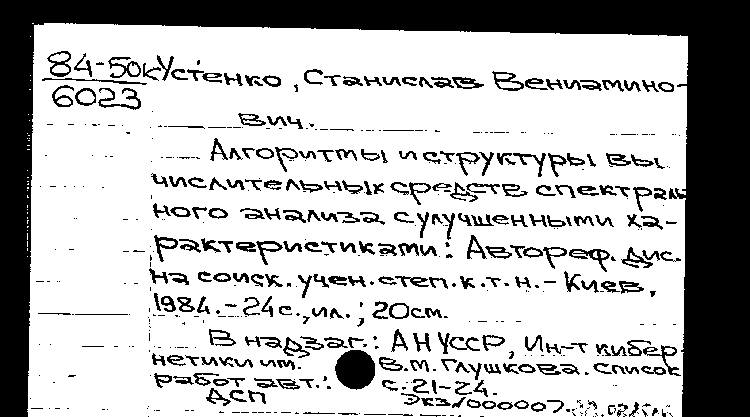 84-50к Устенко, Станислав Вениамино-
6023
вич.
Алгоритмы и структуры вы
числительных средств спектраль
ного анализа с улучшенными ха-
рактеристиками: Автореф. дис.
на соиск. учен. степ. к.т.н. - Киев,
1984. - 24 с., ил.; 20 см.
В надзаг.: АН УССР, Ин-т кибер
нетики им. В.М. Глушкова. Список
работ авт.: с. 21-24.
ДСП Экз N000007.